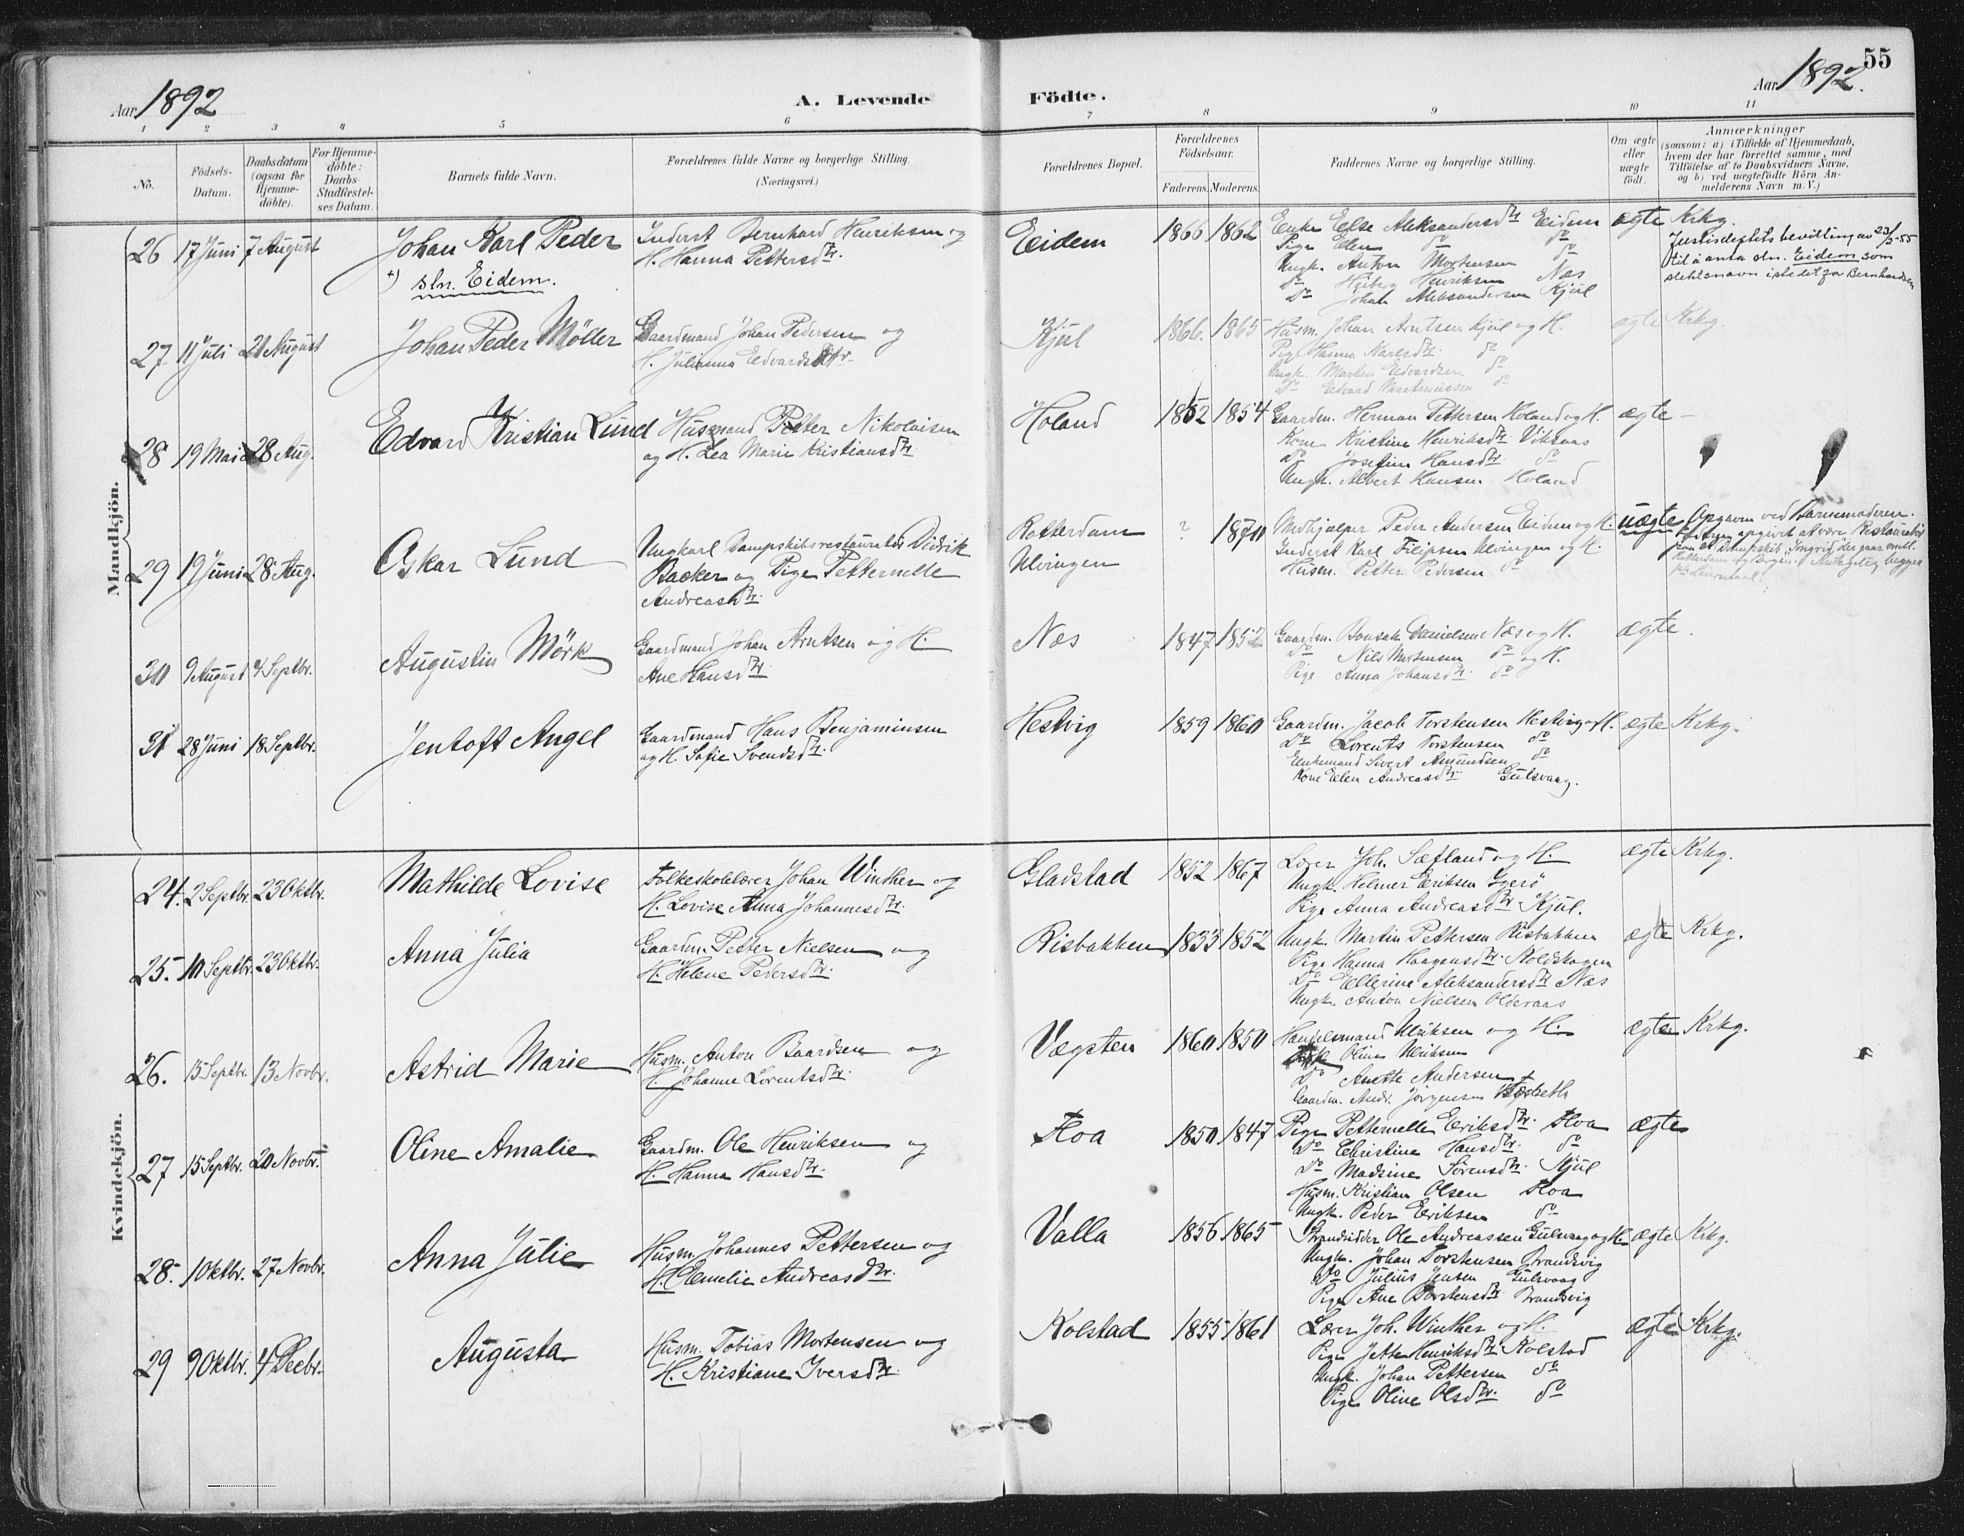 55
Aar 1892
A. Levende Födte.
Aar 1892.
1 2 3 4 5 6 7 8 9 10 11
No. Födsels-Datum. Daabsdatum (ogsaa for Hjemme-döbte). For Hjemme-döbte: Daabs-Stadfæstel-ses Datum. Barnets fulde Navn. Forældrenes fulde Navne og borgerlige Stilling. (Næringsvei.) Forældrenes Bopæl. Forældrenes Födselsaar. Faderens. Moderens. Faddernes Navne og borgerlige Stilling. Om ægte eller uægte födt. Anmærkninger (saasom: a) i Tilfælde af Hjemmedaab, hvem der har forrettet samme, med Tilföielse af to Daabsvidners Navne, og b) ved uægtefödte Börn An-melderens Navn m. V.)
Mandkjön.
26 17 Juni 7 August Johan Karl Peder Inderst Bernhard Henriksen og Eidem 1866 1862 Enke Else Aleksandersdtr Eidem ægte Krkg.
+) sln. Eidem. H. Hanna Pettersdtr. Pige Elen do do
Ungk. Anton Mortensen do
Do Heiberg Henriksen Næs
Do Johan Aleksandersen Kjul
Justisdeptets bevilling av 23/3-55
til å anta sln. Eidem som
slektsnavn istedet for Bernhardsen
27 11 Juli 21 August Johan Peder Möller Gaardmand Johan Pedersen og Kjul 1866. 1865 Husm. Johan Arntsen Kjul og H. ægte Krkg.
H. Julianna Edvardsdtr. Pige Hanna Karlsdtr. do
Ungk. Martin Edvardsen do
Do Edvard Martinussen do
28 19 Mai 28 Aug. Edvard Kristian Lund Husmand Petter Nikolaisen Holand 1852 1854 Gaardm. Herman Pettersen Holand og H. ægte
og H. Lea Marie Kristiansdtr. Kone Kristine Henriksdtr. Vikaas
Do Josefine Hansdtr. do
Ungk. Albert Hansen Holand
29 19 Juni 28 Aug. Oskar Lund Ungkarl Dampskibsrestauratør Didrik Rotterdam ? 1870 Medhjælper Peder Andersen Eidem og H. uægte Opgaven ved Barnemoderen.
Backer og Pige Petternelle Ulvingen Inderst Karl Filipsen Ulvingen og H.
Andreasdtr. Husm. Petter Pedersen do
30 9 August 4 Septbr. Augustin Mörk Gaardmand Johan Arntsen og H. Næs 1847 1852 Gaardm. Bonsak Danielsen Næs og H. ægte.
Ane Hansdtr. Do Nils Mortensen do og H.
Pige Anna Johansdtr. do
31 28 Juni 18 Septbr. Jentoft Angel Gaardmand Hans Benjaminsen Hestvig 1859 1860 Gaardm. Jacob Torstensen Hestvig og H. ægte Krkg.
og H. Sofie Svendsdtr. Do Lorents Torstensen do
Enkemand Sivert Amundsen do
Kone Elen Andreasdtr. Gulsvaag.
Kvindekjön.
24. 2 Septbr. 23 Oktbr. Mathilde Lovise Folkeskolelærer Johan Winther og Gladstad 1852 1867 Lærer Joh. Sætland og H. ægte Krkg.
H. Lovise Anna Johannesdtr. Ungk. Helmer Eriksen Ygerö
Pige Anna Andreasdtr. Kjul.
25. 10 Septbr. 23 Oktbr. Anna Julia Gaardm. Petter Nielsen og Risbakken 1833 1852 Ungk. Martin Pettersen Risbakken ægte Krkg.
H. Helene Pedersdtr. Pige Hanna Haagensdtr.
Do Ellerine Aleksandersdtr. Næs
Ungk. Anton Nielsen Olderaas
26. 15 Septbr. 13 Novbr. Astrid Marie Husm. Anton Baardsen og Vægsten 1860 1850 Handelsmand Ulriksen og H. ægte Krkg.
H. Johanne Lorentsdtr. Oline Ulriksen
Do Anette Andersen
Gaardm. Andr. Jörgensen
27 15 Septbr. 20 Novbr. Oline Amalie Gaardm. Ole Henriksen og Floa 1850 1847 Pige Petternelle Eriksdtr. Floa ægte
H. Hanna Hansdtr. Do Christine Hansdtr. do
Do Madsine Sörensdtr. Kjul
Husm. Kristian Olsen Floa
Ungk. Peder Eriksen do
28. 1 Oktbr. 27 Novbr. Anna Julie Husm. Johannes Pettersen og Valla 1856 1865 Strandsidder Ole Andreassen Gulsvaag og H. ægte Krkg.
H. Emelie Andreasdtr. Ungk. Johan Torstensen Brandsvig
Do Julius Jensen Gulsvaag
Pige Ane Torstensdtr. Brandsvig
29 9 Oktbr. 4 Decbr. Augusta Husm. Tobias Mortensen og Kolstad 1855 1861 Lærer Joh. Winther og H. ægte Krkg.
H. Kristiane Iversdtr. Pige Jette Henriksdtr. Kolstad
Ungk. Johan Pettersen do
Pige Oline Olsdtr. do